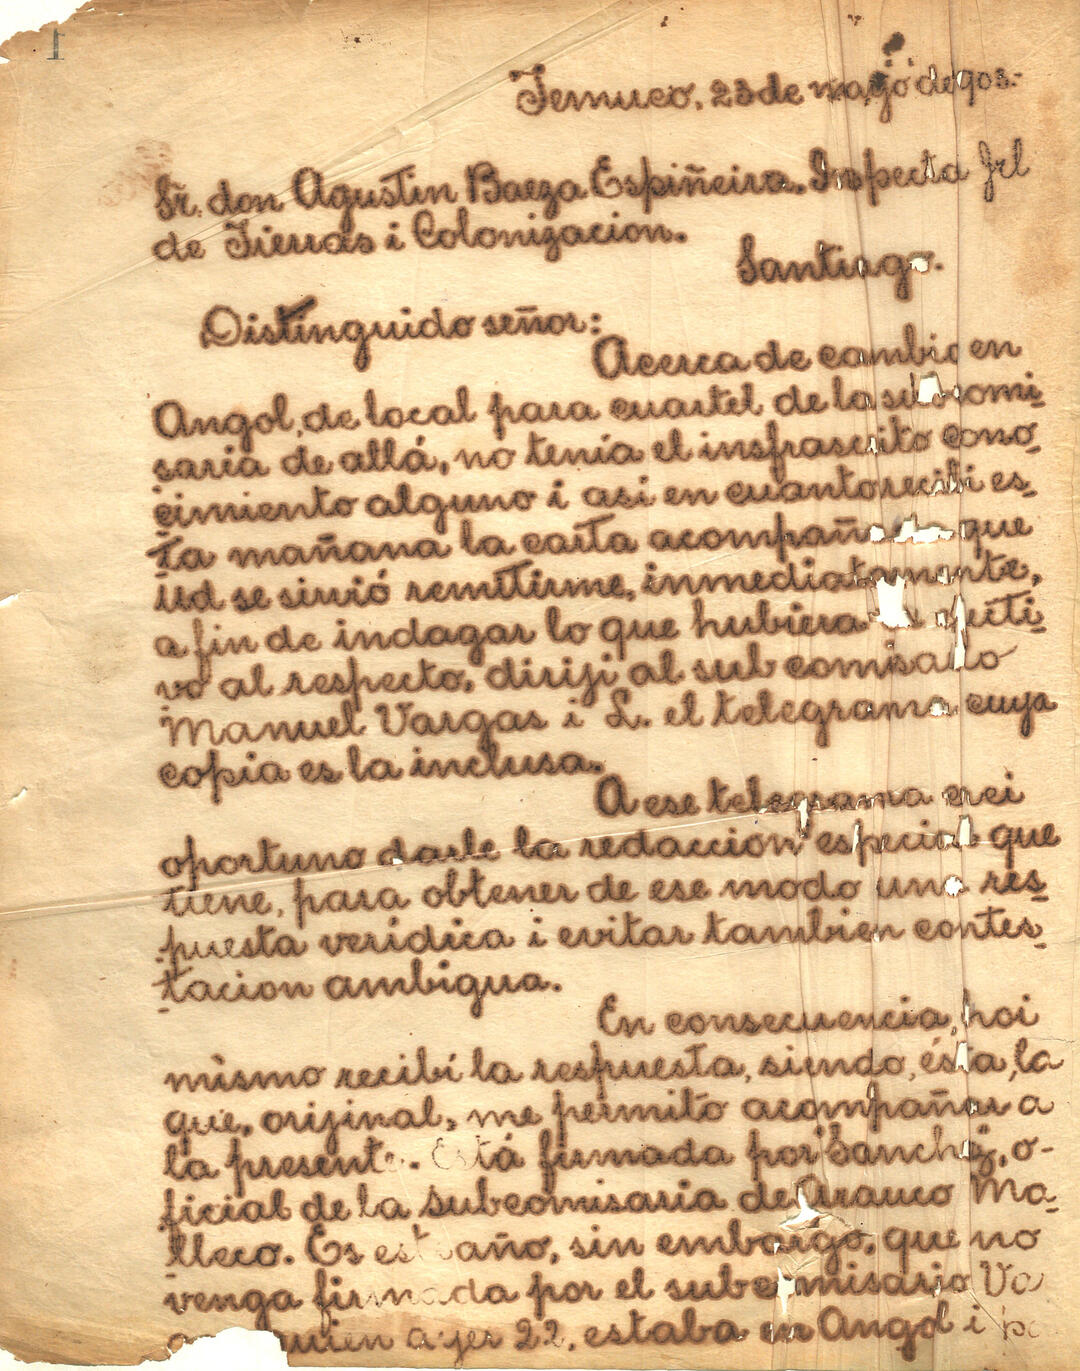 1
Temuco, 23 de mayo de 903.-
Sr. don Agustin Baeza Espiñeira. Inspecto Jrl
de Tierras i Colonizacion.
Santiago.
Distinguido señor:
Acerca de cambio en
Angol, de local para cuartel de la subcomi-
saria de allá, no tenía el insfrascrito cono-
cimiento alguno i asi en cuanto recibi es-
ta mañana la carta acompañada que
Ud se sirvió remitirme, inmediatamente,
a fin de indagar lo que hubiera efecti-
vo al respecto, diriji al sub comisario
Manuel Vargas i L. el telegrama cuya
copia es la inclusa.
A ese telegrama crei
oportuno darle la redaccion especial que
tiene, para obtener de ese modo una res-
puesta verídica i evitar tambien contes-
tacion ambigua.
En consecuencia, hoi
mismo recibí la respuesta, siendo, ésta, la
que, orijinal, me permito acompañar a
la presente. Está firmada por "Sanchez", o-
ficial de la subcomisaria de Arauco Ma-
lleco. Es estraño, sin embargo, que no
venga firmada por el subcomisario Va
quien ayer 22, estaba en Angol i